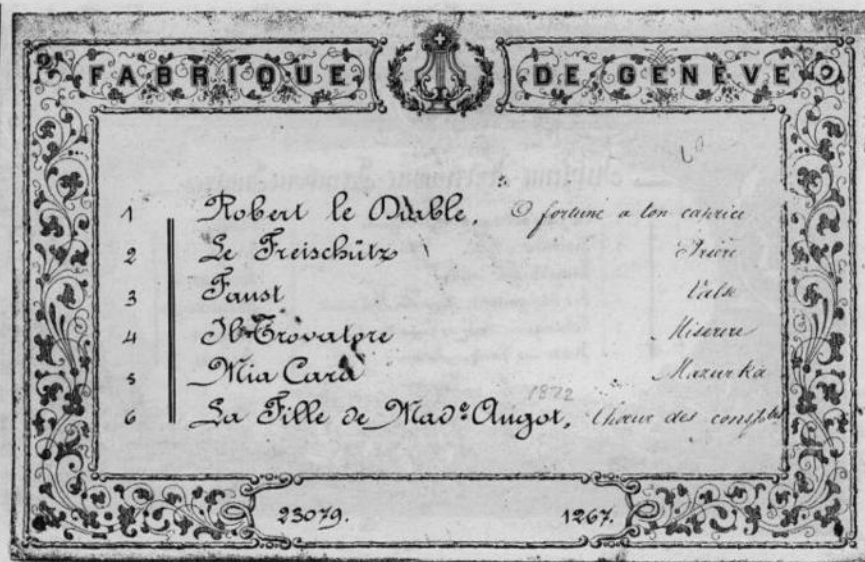 FABRIQUE DE GENÈVE
1 Robert le Diable. O fortune a ton caprice
2 Le Freischütz Prière
3 Faust Valse
4 Il Trovatore Miserere
5 Mia Cara Mazurka
1872
6 La Fille de Mad.e Angot, Chœur des
23079. 1267.